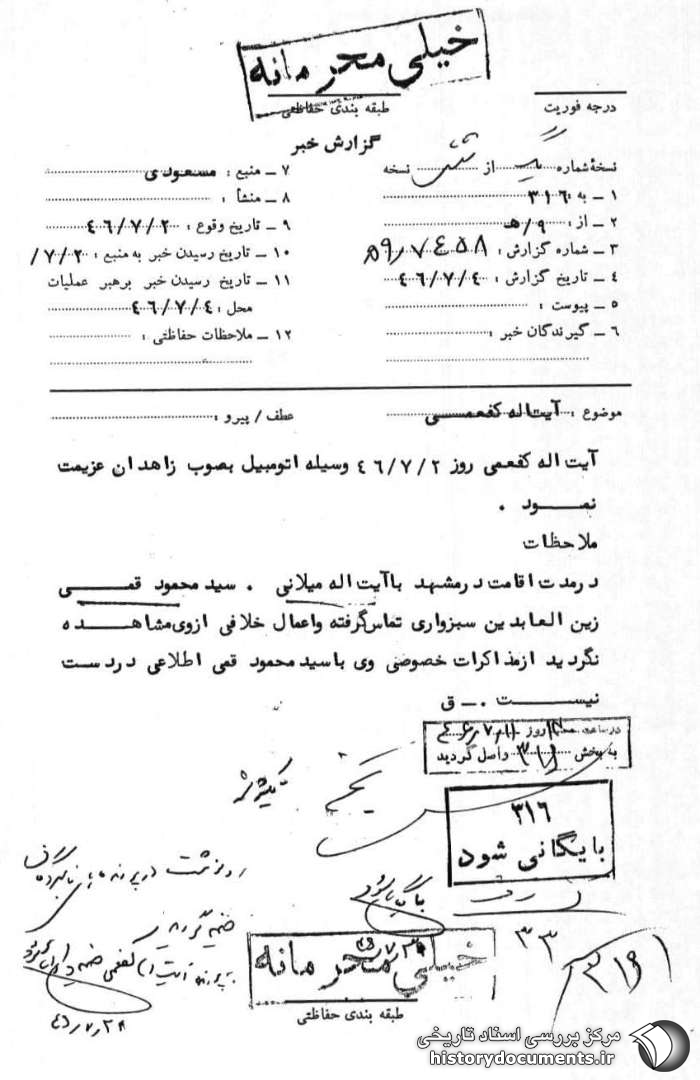 خیلی محرمانه
طبقه بندی حفاظتی
درجه فوریت
گزارش خبر
نسخهٔ شماره یک از شش نسخه
۱ – به : ۳۱۶
۲ – از : ۹/هـ
۳ – شماره گزارش :
۴ – تاریخ گزارش : ۴۶/۷/۴
۵ – پیوست :
۶ – گیرندگان خبر :
۷ – منبع : مسعودی
۸ – منشأ :
۹ – تاریخ وقوع : ۴۶/۷/۲
۱۰ – تاریخ رسیدن خبر به منبع : ۷/۲/
۱۱ – تاریخ رسیدن خبر برهبر عملیات
محل : ۴۶/۷/۴
۱۲ – ملاحظات حفاظتی :
موضوع : آیت اله کفعمـــی
عطف / پیرو :
آیت اله کفعمی روز ۴۶/۷/۲ وسیله اتومبیل بصوب زاهدان عزیمت
نمـــود .
ملاحظات
درمدت اقامت درمشهد باآیت اله میلانی . سید محمود قمـــی
زین العابدین سبزواری تماس گرفته واعمال خلافی ازوی مشاهـــده
نگردید ازمذاکرات خصوصی وی باسید محمود قمی اطلاعی دردست
نیســـت .ــ ق
در ساعت روز
به بخش ۳۱۶ واصل گردید
۳۱۶
بایگانی شود
بایگانی شود
۳۳
۳۱۶
رونوشت در پرونده های نامبردگان
ضمیمه گردید
خیلی محرمانه
طبقه بندی حفاظتی
مرکز بررسی اسناد تاریخی
historydocuments.ir